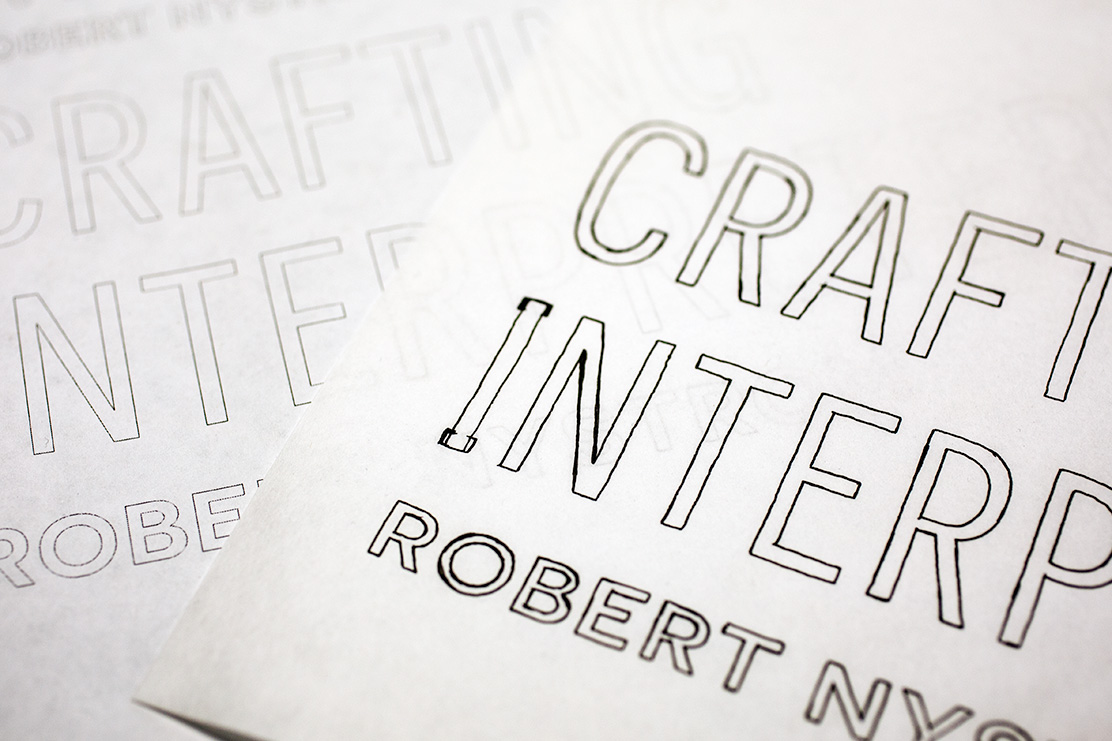 OBERT NYS
CRAFTING
NTERPR
ROBE
CRAFT
INTERP
ROBERT NYS